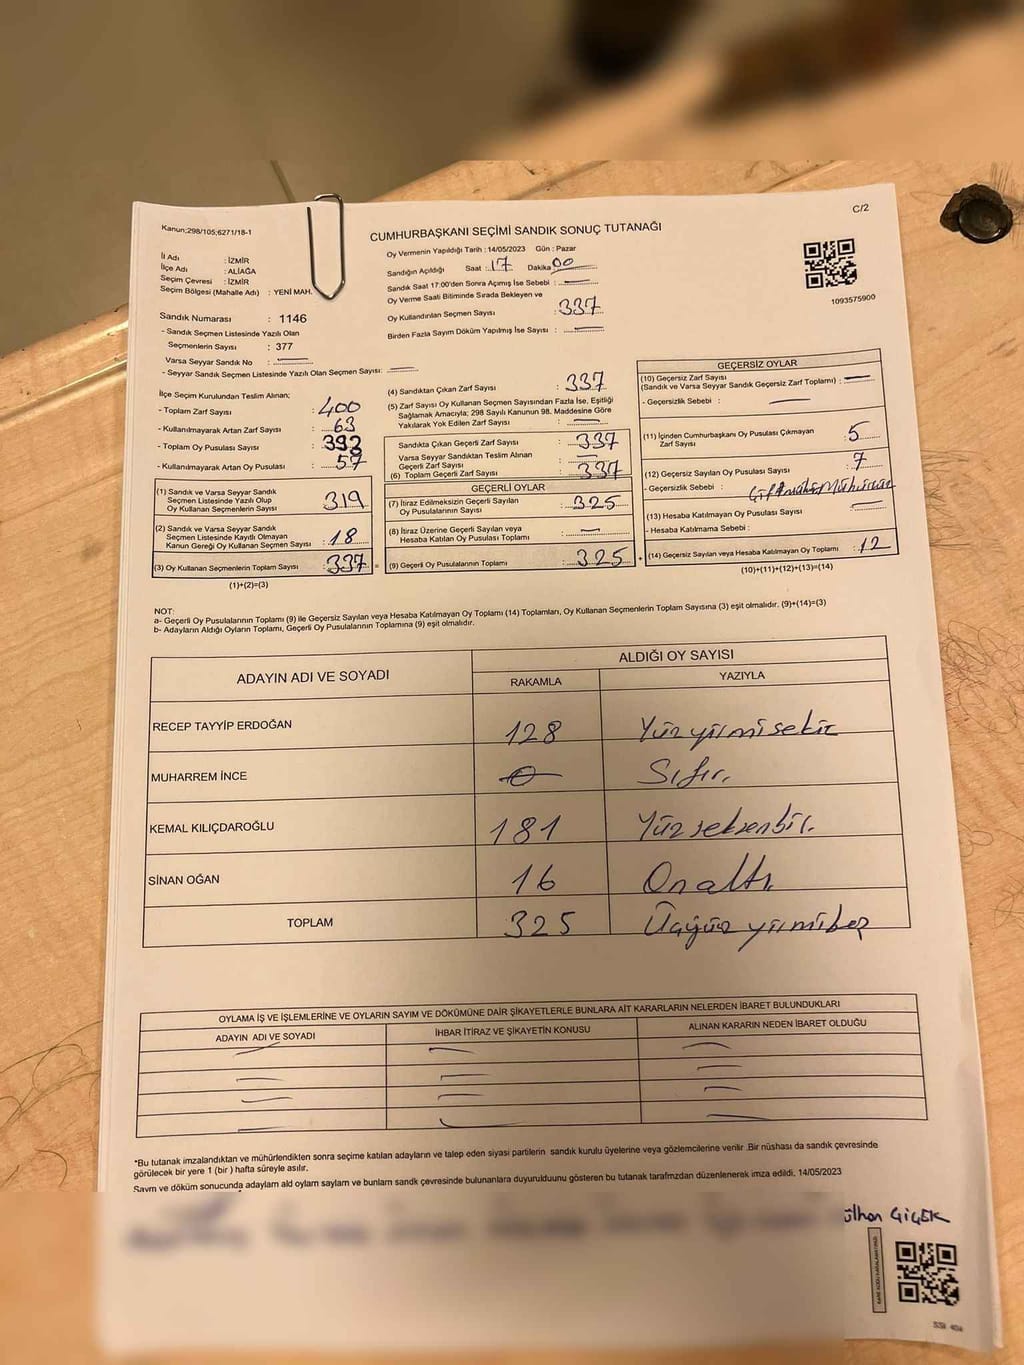 C/2
Kanun;298/105;6271/18-1
CUMHURBAŞKANI SEÇİMİ SANDIK SONUÇ TUTANAĞI
İl Adı : İZMİR
İlçe Adı : ALİAĞA
Seçim Çevresi : İZMİR
Seçim Bölgesi (Mahalle Adı) : YENİ MAH.
Oy Vermenin Yapıldığı Tarih : 14/05/2023 Gün : Pazar
Sandığın Açıldığı Saat : 17 Dakika 00
Sandık Saat 17:00'den Sonra Açımış İse Sebebi :
Oy Verme Saati Bitiminde Sırada Bekleyen ve
Oy Kullandırılan Seçmen Sayısı : 337
Birden Fazla Sayım Döküm Yapılmış İse Sayısı :
1093575900
Sandık Numarası : 1146
- Sandık Seçmen Listesinde Yazılı Olan
Seçmenlerin Sayısı : 377
Varsa Seyyar Sandık No :
- Seyyar Sandık Seçmen Listesinde Yazılı Olan Seçmen Sayısı:
İlçe Seçim Kurulundan Teslim Alınan;
- Toplam Zarf Sayısı : 400
- Kullanılmayarak Artan Zarf Sayısı : 63
- Toplam Oy Pusulası Sayısı : 393
- Kullanılmayarak Artan Oy Pusulası : 57
(1) Sandık ve Varsa Seyyar Sandık
Seçmen Listesinde Yazılı Olup
Oy Kullanan Seçmenlerin Sayısı 319
(2) Sandık ve Varsa Seyyar Sandık
Seçmen Listesinde Kayıtlı Olmayan
Kanun Gereği Oy Kullanan Seçmen Sayısı : 18
(3) Oy Kullanan Seçmenlerin Toplam Sayısı : 337 =
(1)+(2)=(3)
(4) Sandıktan Çıkan Zarf Sayısı : 337
(5) Zarf Sayısı Oy Kullanan Seçmen Sayısından Fazla İse, Eşitliği
Sağlamak Amacıyla; 298 Sayılı Kanunun 98. Maddesine Göre
Yakılarak Yok Edilen Zarf Sayısı :
Sandıkta Çıkan Geçerli Zarf Sayısı : 337
Varsa Seyyar Sandıktan Teslim Alınan
Geçerli Zarf Sayısı
(6) Toplam Geçerli Zarf Sayısı : 337
GEÇERLİ OYLAR
(7) İtiraz Edilmeksizin Geçerli Sayılan
Oy Pusulasının Sayısı : 325
(8) İtiraz Üzerine Geçerli Sayılan veya
Hesaba Katılan Oy Pusulası Toplamı :
(9) Geçerli Oy Pusulalarının Toplamı : 325 +
GEÇERSİZ OYLAR
(10) Geçersiz Zarf Sayısı
(Sandık ve Varsa Seyyar Sandık Geçersiz Zarf Toplamı) :
- Geçersizlik Sebebi :
(11) İçinden Cumhurbaşkanı Oy Pusulası Çıkmayan
Zarf Sayısı : 5
(12) Geçersiz Sayılan Oy Pusulası Sayısı : 7
- Geçersizlik Sebebi :
(13) Hesaba Katılmayan Oy Pusulası Sayısı :
- Hesaba Katılmama Sebebi :
(14) Geçersiz Sayılan veya Hesaba Katılmayan Oy Toplamı : 12
(10)+(11)+(12)+(13)=(14)
NOT:
a- Geçerli Oy Pusulalarının Toplamı (9) ile Geçersiz Sayılan veya Hesaba Katılmayan Oy Toplamı (14) Toplamları, Oy Kullanan Seçmenlerin Toplam Sayısına (3) eşit olmalıdır. (9)+(14)=(3)
b- Adayların Aldığı Oyların Toplamı, Geçerli Oy Pusulalarının Toplamına (9) eşit olmalıdır.
ADAYIN ADI VE SOYADI ALDIĞI OY SAYISI
RAKAMLA YAZIYLA
RECEP TAYYİP ERDOĞAN 128 Yüzyirmisekiz
MUHARREM İNCE 0 Sıfır.
KEMAL KILIÇDAROĞLU 181 Yüzseksenbir.
SİNAN OĞAN 16 Onaltı
TOPLAM 325 Üçyüzyirmibeş
OYLAMA İŞ VE İŞLEMLERİNE VE OYLARIN SAYIM VE DÖKÜMÜNE DAİR ŞİKAYETLERLE BUNLARA AİT KARARLARIN NELERDEN İBARET BULUNDUKLARI
ADAYIN ADI VE SOYADI İHBAR İTİRAZ VE ŞİKAYETİN KONUSU ALINAN KARARIN NEDEN İBARET OLDUĞU
*Bu tutanak imzalandıktan ve mühürlendikten sonra seçime katılan adayların ve talep eden siyasi partilerin sandık kurulu üyelerine veya gözlemcilerine verilir .Bir nüshası da sandık çevresinde
görülecek bir yere 1 (bir ) hafta süreyle asılır.
Sayım ve döküm sonucunda adayların aldı oyların sayları ve bunların sandk çevresinde bulunanlara duyurulduunu gösteren bu tutanak tarafımzdan düzenlenerek imza edildi. 14/05/2023
ülhan ÇİÇEK